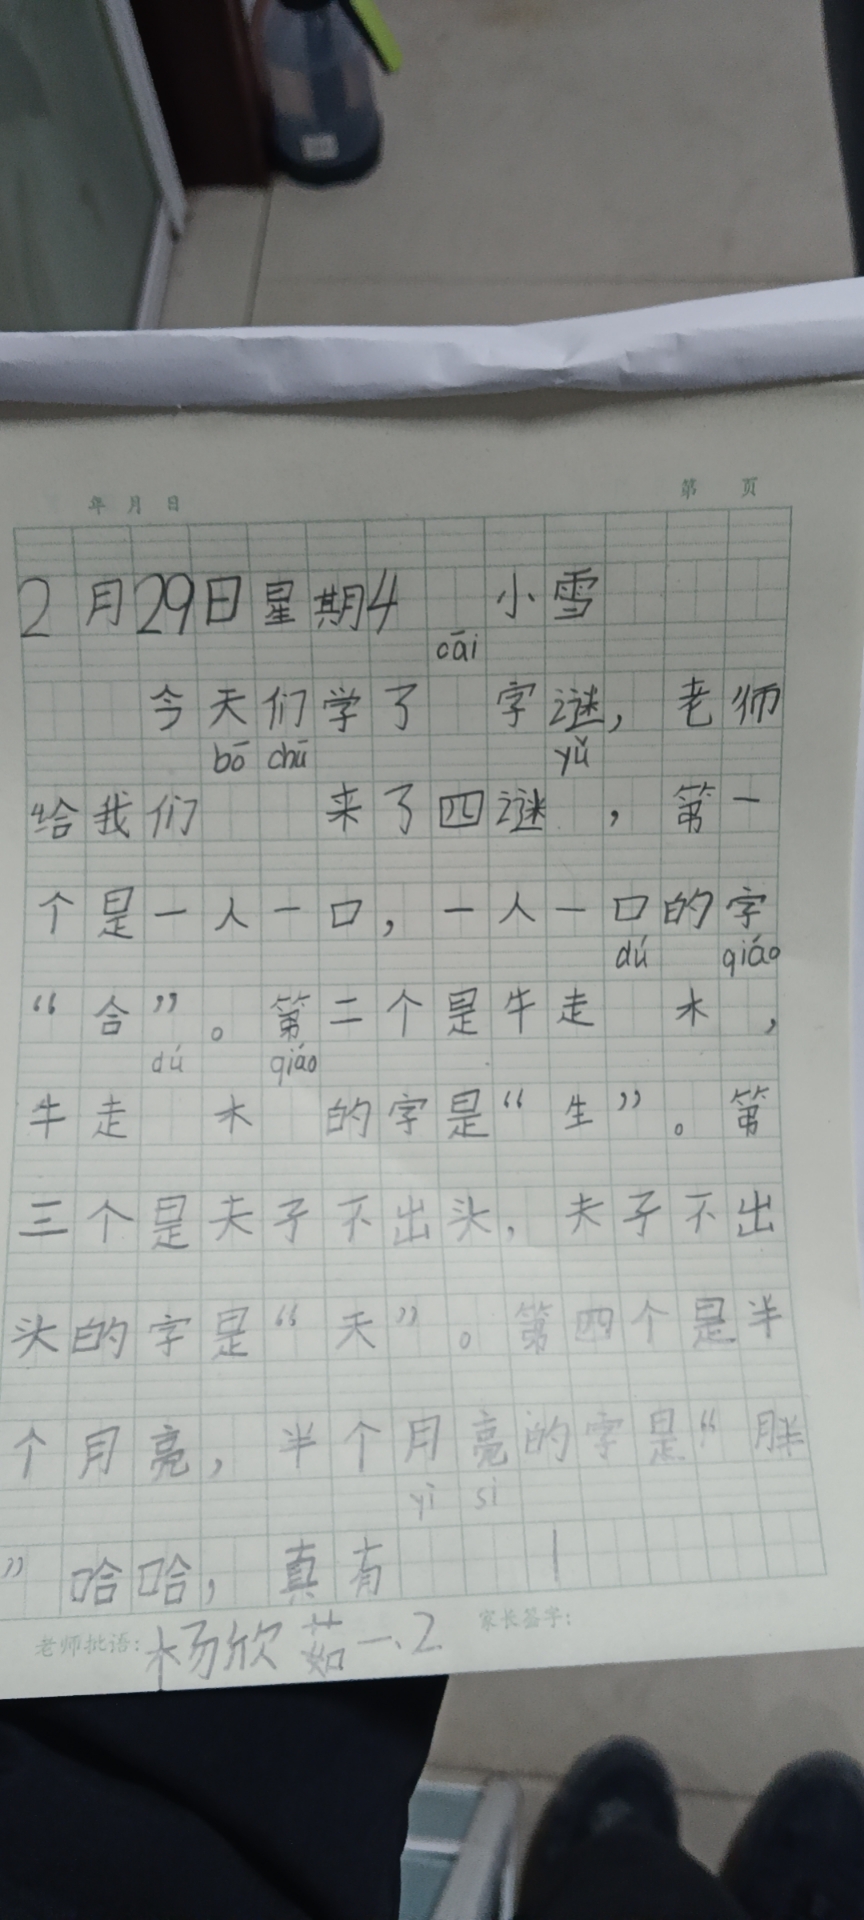 年 月 日 第 页
2月29日星期4 小雪
cāi
今天们学了 字谜，老师
bō chū yǔ
给我们 来了四谜 ，第一
个是一人一口，一人一口的字
dú qiáo
“合”。第二个是牛走 木，
dú qiáo
牛走 木 的字是“生”。第
三个是夫子不出头，夫子不出
头的字是“天”。第四个是半
个月亮，半个月亮的字是“胖
yì si
”哈哈，真有 ！
老师批语：杨欣茹一.2 家长签字：